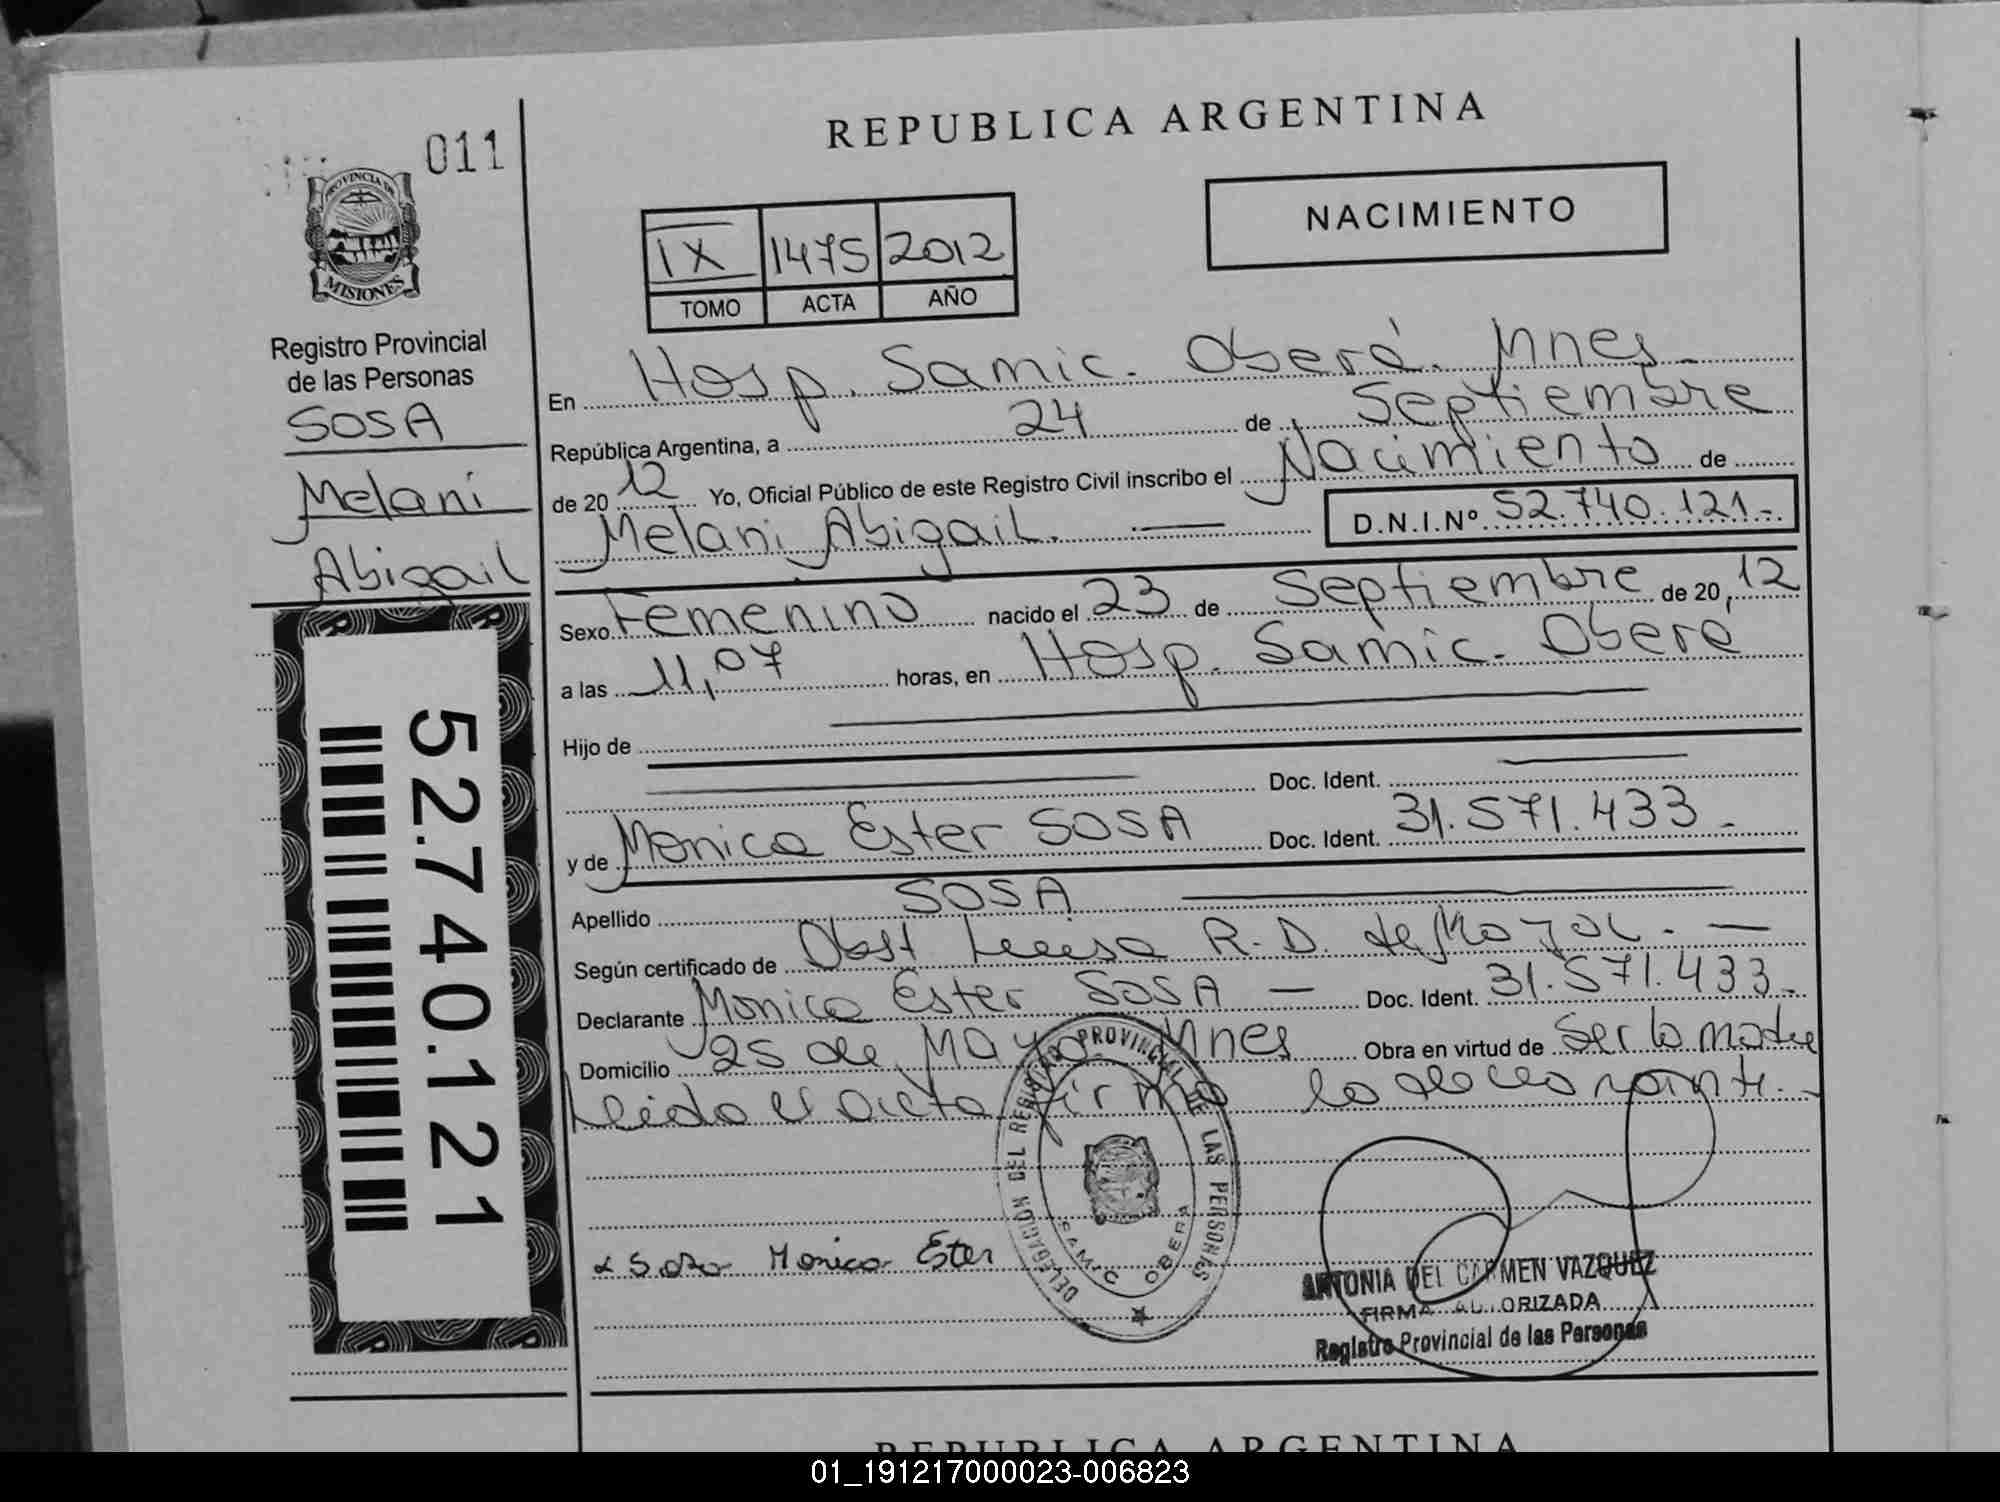 011
REPUBLICA ARGENTINA
PROVINCIA DE
MISIONES
NACIMIENTO
IX 1475 2012
TOMO ACTA AÑO
Registro Provincial
de las Personas
SOSA
Melani
Abigail
52.740.121
En Hosp. Samic. Oberá. Mnes
República Argentina, a 24 de Septiembre
de 2012 Yo, Oficial Público de este Registro Civil inscribo el Nacimiento de
Melani Abigail. D.N.I.Nº 52.740.121.-
Sexo Femenino nacido el 23 de Septiembre de 20 12
a las 11,07 horas, en Hosp. Samic. Oberá
Hijo de
Doc. Ident.
y de Monica Ester SOSA Doc. Ident. 31.571.433.-
Apellido SOSA
Según certificado de Obst Luisa R. D. de Mayol. -
Declarante Monica Ester SOSA - Doc. Ident. 31.571.433.-
Domicilio 25 de Mayo. Mnes Obra en virtud de Ser la madre
Leida el acta firma la declarante.-
DELEGACION DEL REGISTRO PROVINCIAL DE LAS PERSONAS
SAMIC OBERA
x Sosa Monica Ester
ANTONIA DEL CARMEN VAZQUEZ
FIRMA AUTORIZADA
Registro Provincial de las Personas
REPUBLICA ARGENTINA
01_191217000023-006823